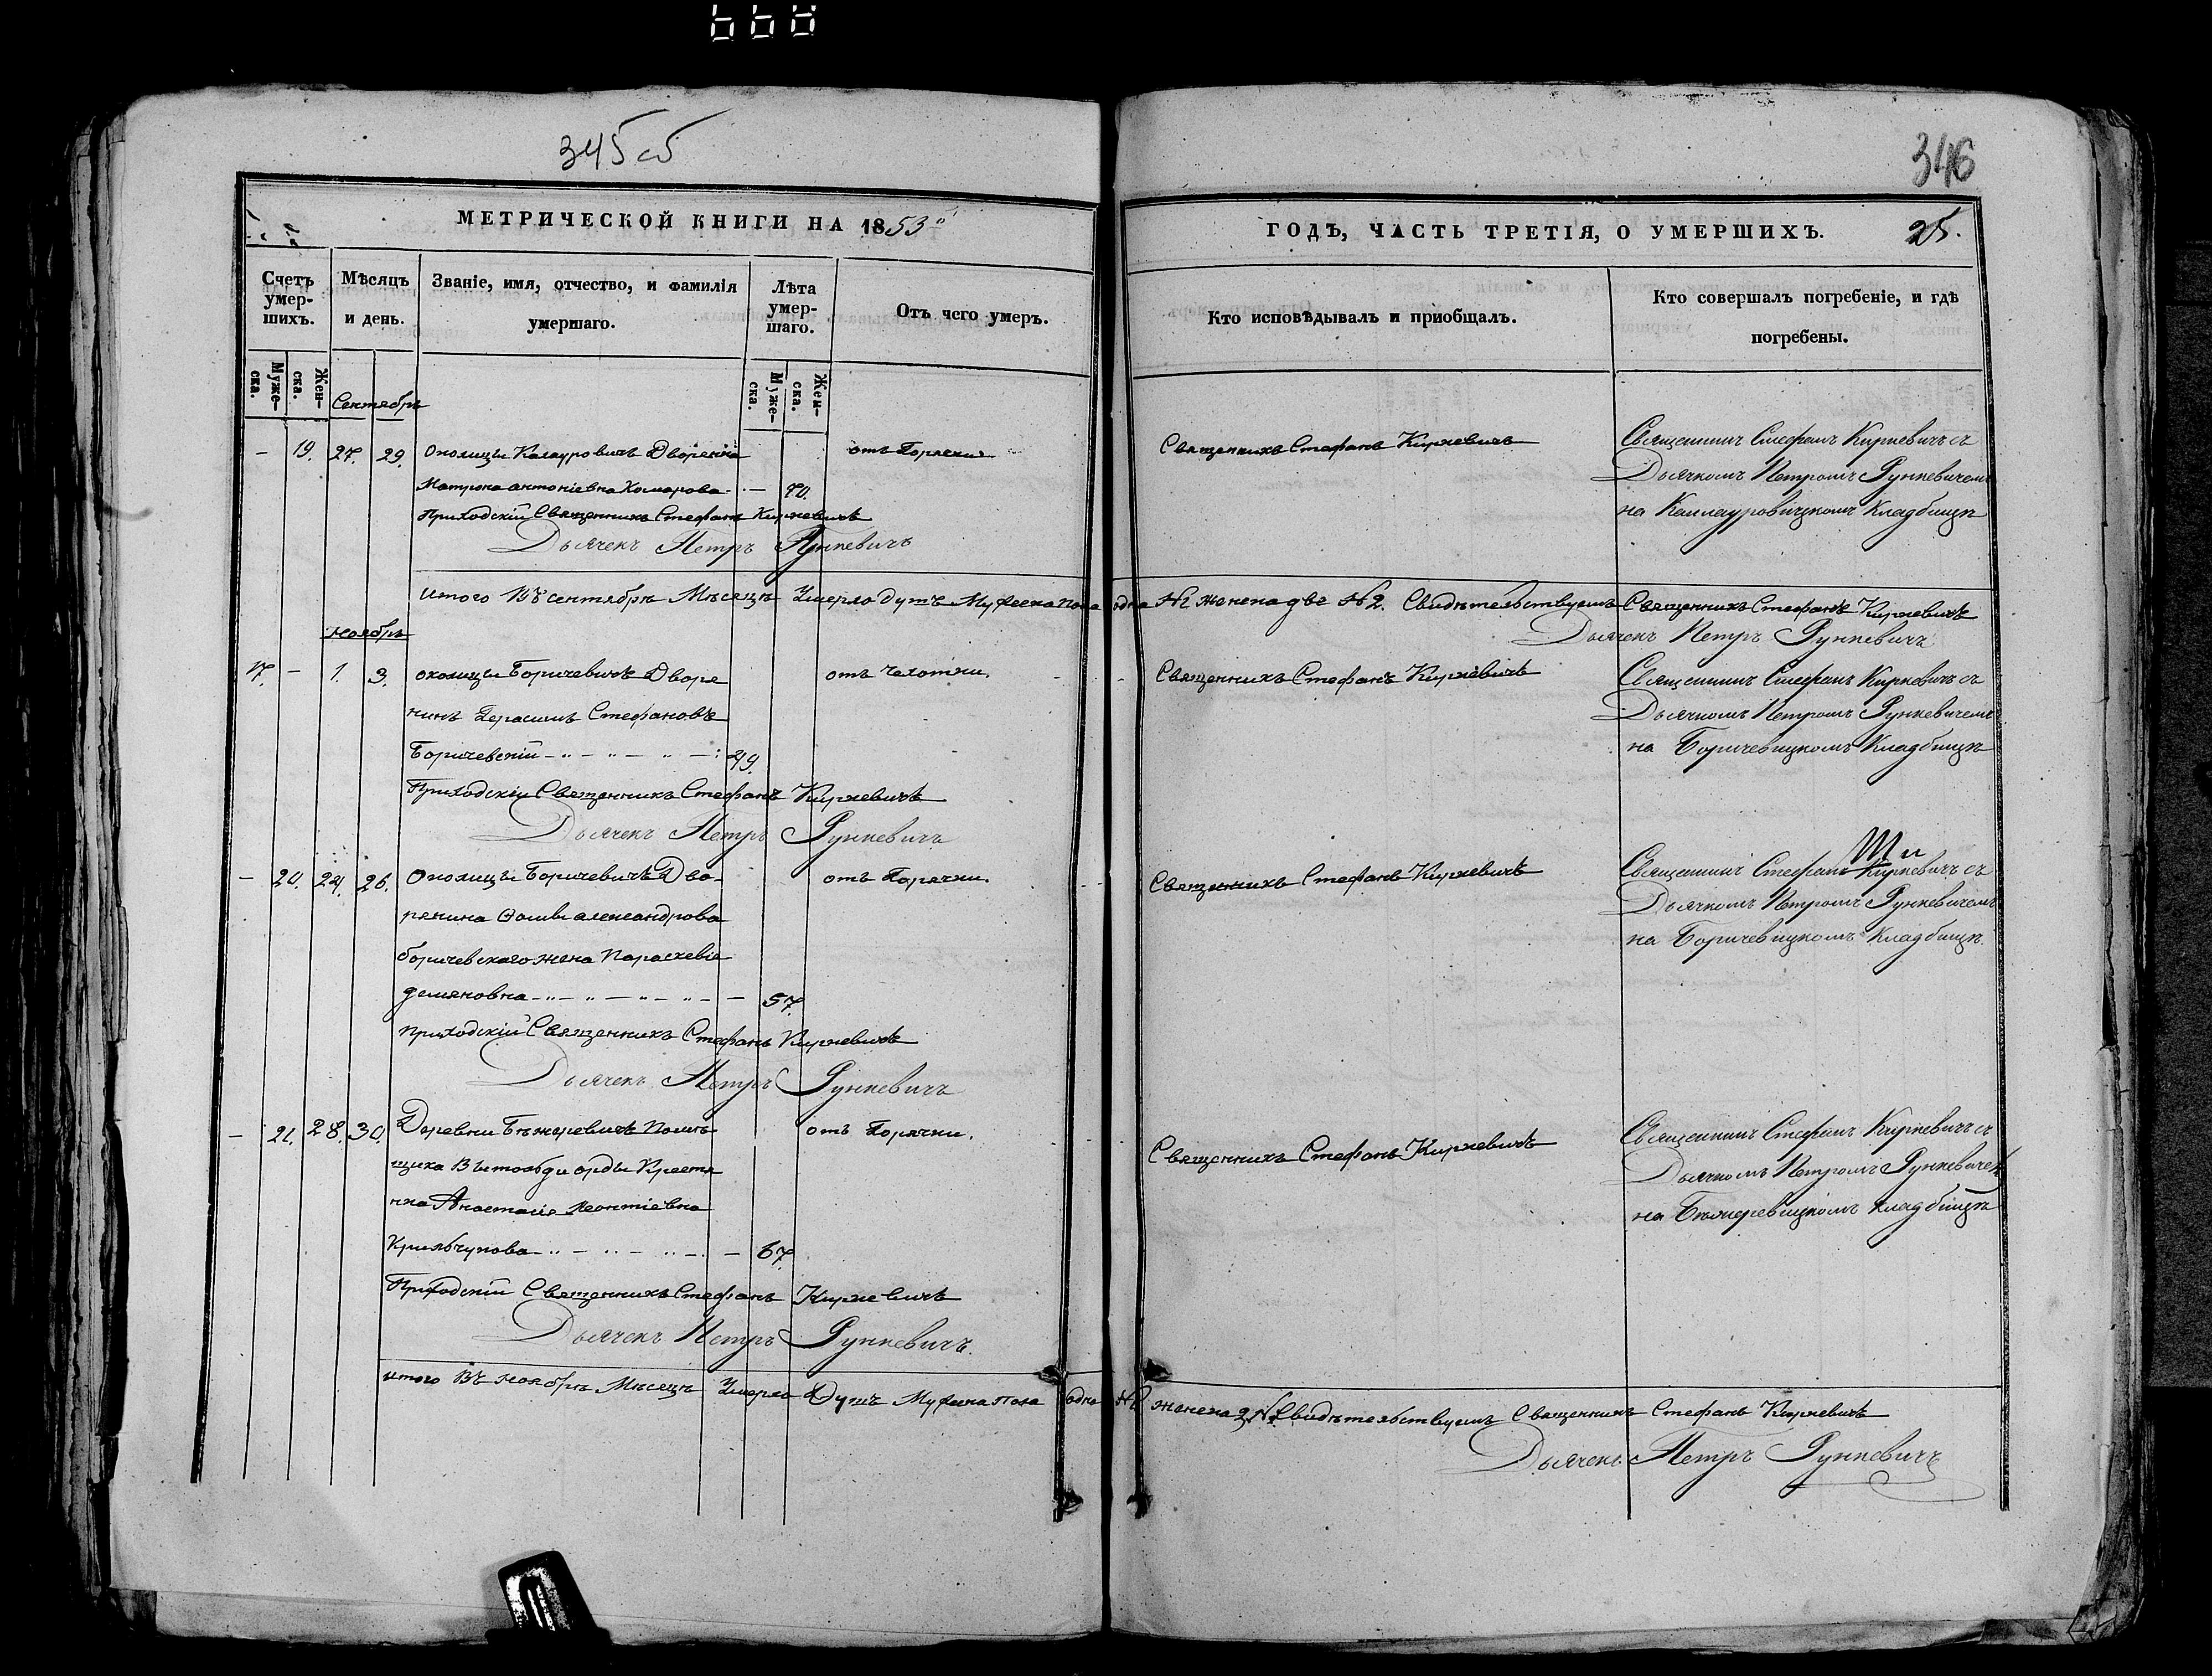 345об
346
МЕТРИЧЕСКОЙ КНИГИ НА 1853й
ГОДЪ, ЧАСТЬ ТРЕТІЯ, О УМЕРШИХЪ. 25.
Счетъ умер-шихъ.
Мѣсяцъ и день.
Званіе, имя, отчество, и фамилія умершаго.
Лѣта умер-шаго.
Отъ чего умеръ.
Кто исповѣдывалъ и приобщалъ.
Кто совершалъ погребеніе, и гдѣ погребены.
Муже-ска. Жен-ска.
Муже-ска. Жен-ска.
Сентябрь
– 19. 27. 29. Околицы Калауровичъ Дворенка
Матрона антоніевна Комарова – 70.
отъ Горячки
Приходскій Священникъ Стефанъ Киркевичъ
Дьячекъ Петръ Рункевичъ
Священникъ Стефанъ Киркевичъ
Священникъ Стефанъ Киркевичъ съ
Дьячкомъ Петромъ Рункевичемъ
на Каллауровицкомъ Кладбищѣ
итого Въ сентябрѣ Мѣсецѣ Умерло душъ Мужеска пола одна №1 женска две №2. Свидѣтельствуемъ Священникъ Стефанъ Киркевичъ
Дьячекъ Петръ Рункевичъ
ноябрь
17. – 1. 3. околицы Боричевичъ Дворя
нинъ Герасимъ Стефановъ
Боричевскій 49.
отъ чахотки.
Приходскій Священникъ Стефанъ Киркевичъ
Дьячекъ Петръ Рункевичъ
Священникъ Стефанъ Киркевичъ
Священникъ Стефанъ Киркевичъ съ
Дьячкомъ Петромъ Рункевичемъ
на Боричевицкомъ Кладбищѣ
– 20. 24. 26. Околицы Боричевичъ Дво-
рянина Фомы александрова
боричевскаго жена Параскевіа
демяновна – 57.
отъ Горячки.
приходскій Священникъ Стефанъ Киркевичъ
Дьячекъ Петръ Рункевичъ
Священникъ Стефанъ Киркевичъ
Священникъ Стефанъ Киркевичъ съ
Дьячкомъ Петромъ Рункевичемъ
на Боричевицкомъ Кладбищѣ.
– 21. 28. 30. Деревни Бѣжеревичъ Помѣ
щика Витольди орды Крестя
нка Анастасія леонтіевна
– 67.
отъ Горячки.
Приходскій Священникъ Стефанъ Киркевичъ
Дьячекъ Петръ Рункевичъ.
Священникъ Стефанъ Киркевичъ
Священникъ Стефанъ Киркевичъ съ
Дьячкомъ Петромъ Рункевичем
на Бѣжеревицкомъ кладбищѣ
итого Въ ноябрѣ Мѣсецѣ Умерло Душъ Мужеска пола одна №1 женска 2 Свидѣтельствуемъ Священникъ Стефанъ Киркевичъ
Дьячекъ Петръ Рункевичъ